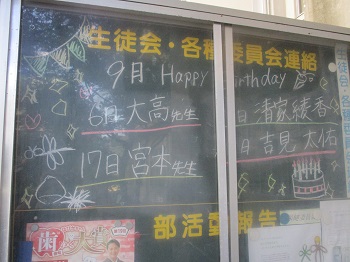 生徒会・各種委員会連絡
9月 Happy Birthday
6日 大高先生
日 清家綾香
17日 宮本先生
日 吉見 太佑
部活動報告
歯